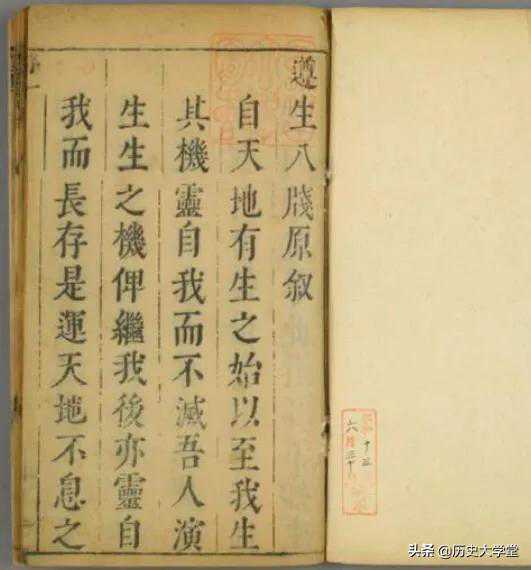 遵生八牋原叙
自天地有生之始以至我生
其機靈自我而不滅吾人演
生生之機俾繼我後亦靈自
我而長存是運天地不息之
頭条 @历史大学堂